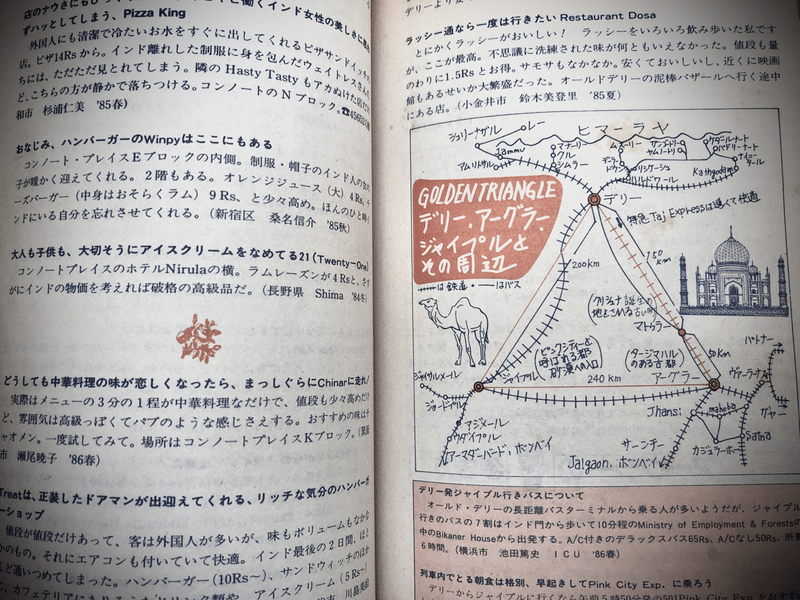 ずハッとしてしまう、Pizza King
外国人にも清潔で冷たいお水をすぐに出してくれるピザサンドイッチの
店。ピザ14Rsから。インド離れした制服に身を包んだウェイトレスさん
ちには、ただただ見とれてしまう。隣のHasty Tastyもアカぬけた店だ
ど、こちらの方が静かで落ちつける。コンノートのNブロック。☎
和市 杉浦仁美 '85春)
おなじみ、ハンバーガーのWinpyはここにもある
コンノート・プレイスEブロックの内側。制服・帽子のインド人の女の
子が暖かく迎えてくれる。2階もある。オレンジジュース(大)4Rs、チ
ーズバーガー(中身はおそらくラム)9Rs、と少々高め。ほんのひと時イ
ンドにいる自分を忘れさせてくれる。(新宿区 桑名信介 '85秋)
大人も子供も、大切そうにアイスクリームをなめてる21(Twenty-One)
コンノートプレイスのホテルNirulaの横。ラムレーズンが4Rsと、さす
がにインドの物価を考えれば破格の高級品だ。(長野県 Shima '84冬)
どうしても中華料理の味が恋しくなったら、まっしぐらにChinarに走れ!
実際はメニューの3分の1程が中華料理なだけで、値段も少々高めだけ
ど、雰囲気は高級ぽくてパブのような感じさえする。おすすめの味はチ
ャオメン。一度試してみて。場所はコンノートプレイスKブロック。
市 瀬尾暁子 '86春)
Treatは、正装したドアマンが出迎えてくれる、リッチな気分のハンバーガ
ーショップ
値段が値段だけあって、客は外国人が多いが、味もボリュームもなかな
かのもの。それにエアコンも付いていて快適。インド最後の2日間、ほと
んど通いつめてしまった。ハンバーガー(10Rs〜)、サンドウィッチのほか
アイスクリーム(5Rs〜)
ラッシー通なら一度は行きたい Restaurant Dosa
とにかくラッシーがおいしい! ラッシーをいろいろ飲み歩いた私です
が、ここが最高。不思議に洗練された味が何ともいえなかった。値段も量
のわりに1.5Rsとお得。サモサもなかなか。安くておいしいし、近くに映画
館もあるせいか大繁盛だった。オールドデリーの泥棒バザールへ行く途中
にある店。(小金井市 鈴木美登里 '85夏)
シュリーナガル
レー
ヒマーラヤ
Jammu
アムリトサル
マナーリー
クルー
シムラー
ムスーリー
デヘラードゥーン
ガンゴートリー
ヤムノートリー
リシケーシュ
ハルドワール
ケダルナート
バドリーナート
ナイニータール
Kathgodam
GOLDEN TRIANGLE
デリー、アーグラー、
ジャイプルと
その周辺
は鉄道・ーはバス
デリー
特急Taj Expressは速くて快適
200km
150
km
クリシュナ誕生の
地とされる古い町
マトゥラー
50km
ピンクシティーと
呼ばれる古都
砂漠の入口
タージマハル
のある古都
ジャイサルメール
ジャイプル
240 km
アーグラー
ジョードプル
アジメール
ウダイプル
アーマダーバード、ボンベイ
サーンチー
Jalgaon、ボンベイへ
Jhansi
mahoba
カジュラーホー
Satna
パトナー
ヴァーラナスィ
ガヤー
デリー発ジャイプル行きバスについて
オールド・デリーの長距離バスターミナルから乗る人が多いようだが、ジャイプル
行きのバスの7割はインド門から歩いて10分程のMinistry of Employment & Forestsの
中のBikaner Houseから出発する。A/C付きのデラックスバス65Rs、A/Cなし50Rs、所要
6時間。(横浜市 池田篤史 ICU '86春)
列車内でとる朝食は格別、早起きしてPink City Exp. に乗ろう
デリーからジャイプルに行くなら午前5時50分発の501Pink City Exp.をおすすめ